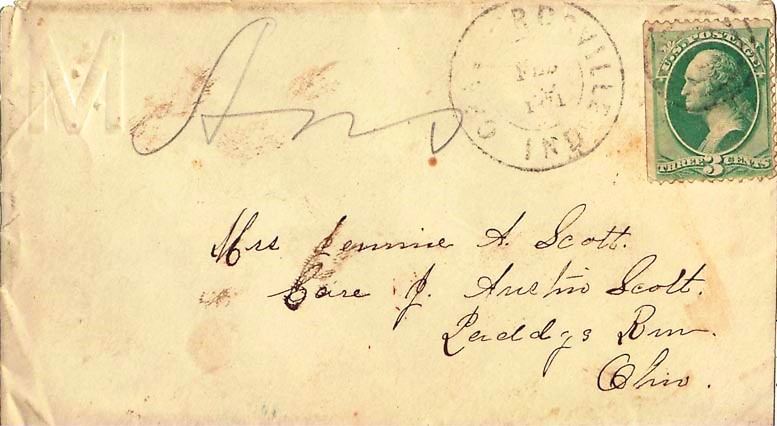 M
Ans
CRAWFORDSVILLE
FEB
IND
U.S. POSTAGE
THREE 3 CENTS
Mrs Jennie A. Scott.
Care J. Austin Scott.
Paddys Run.
Ohio.